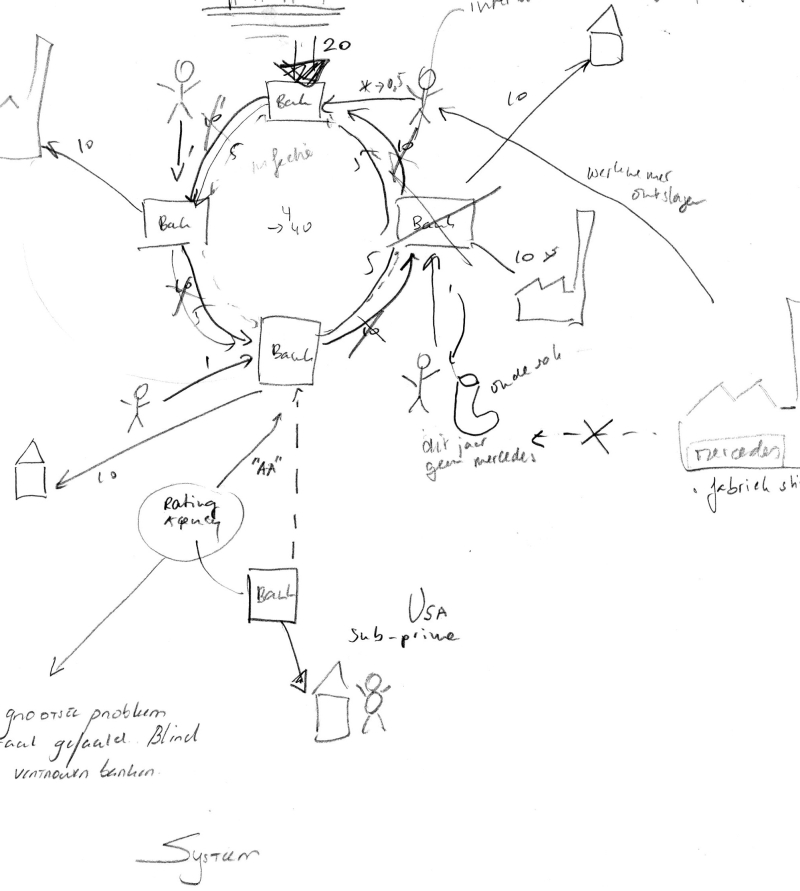 20
Bank
* → 0,5
10
10
5
infectie
10
10
5
1
werknemer
ontslagen
Bank
4
→ 40
Bank
10
5
5
10
10
1
Bank
1
10
onderzoek
dit jaar
geen mercedes
mercedes
"AA"
Rating
Agency
Bank
USA
sub-prime
grootste probleem
gefaald. Blind
vertrouwen banken.
System